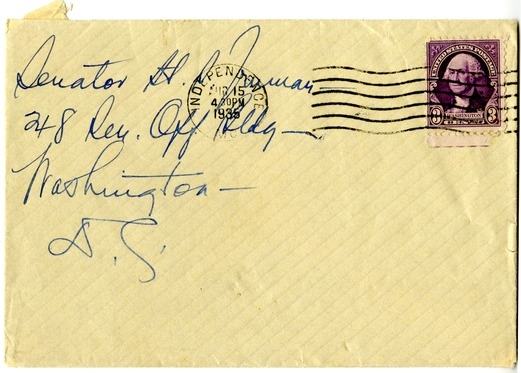 Senator H. S. Truman—
248 Sen. Off Bldg—
Washington—
D. C.
INDEPENDENCE
15
4 30PM
1935
UNITED STATES POSTAGE
WASHINGTON
3 3